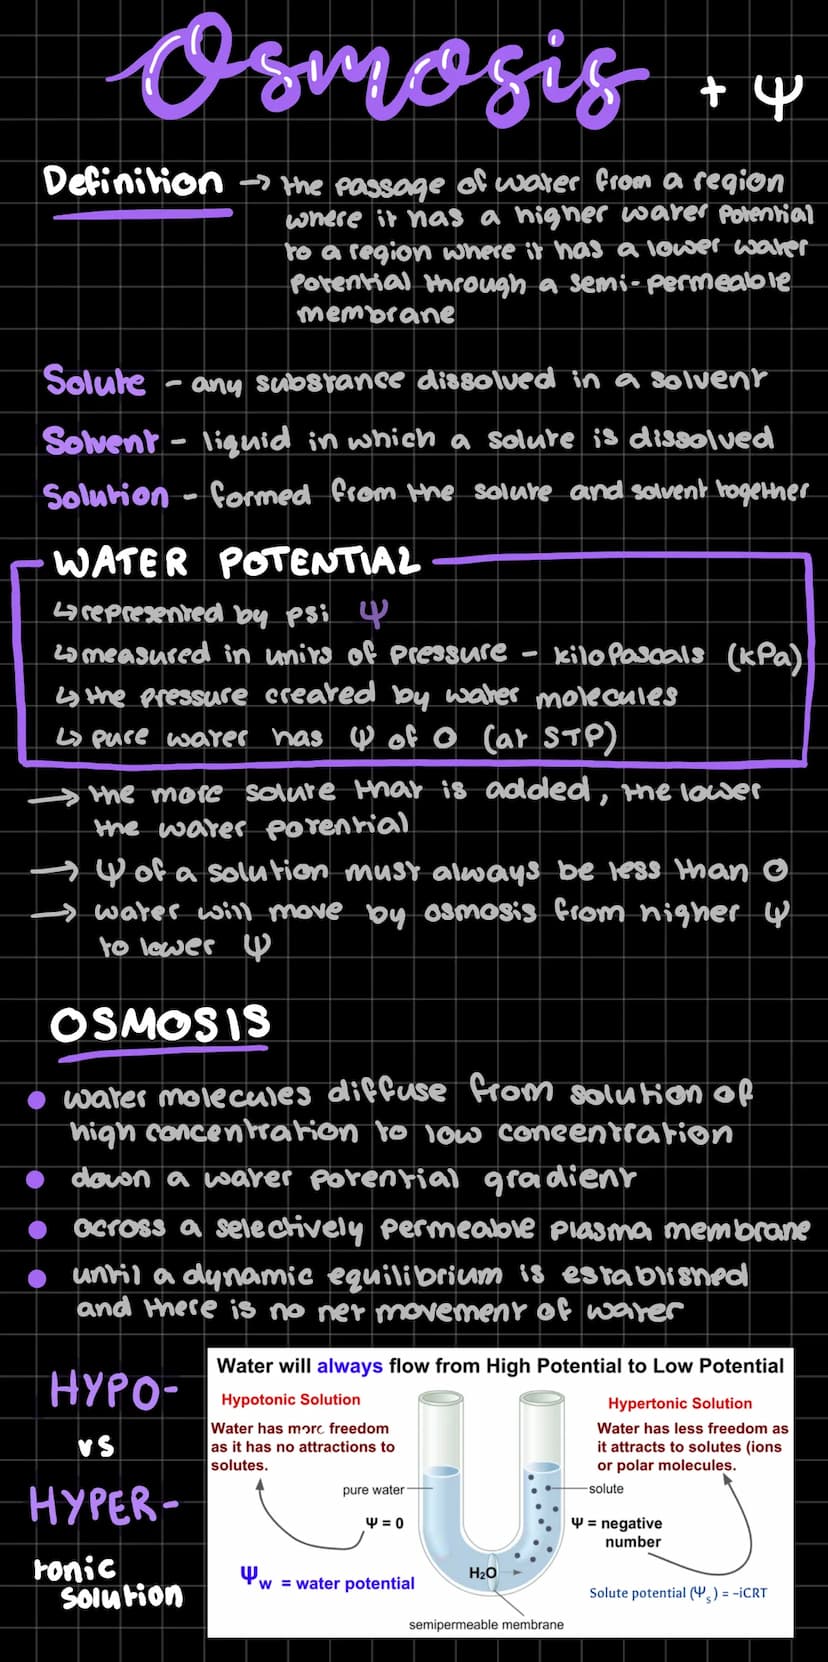 Osmosis + Ψ
Definition → the passage of water from a region
where it has a higher water potential
to a region where it has a lower water
potential through a semi-permeable
membrane
Solute - any substance dissolved in a solvent
Solvent - liquid in which a solute is dissolved
Solution - formed from the solute and solvent together
WATER POTENTIAL
↳ represented by psi Ψ
↳ measured in units of pressure - kiloPascals (kPa)
↳ the pressure created by water molecules
↳ pure water has Ψ of 0 (at STP)
→ the more solute that is added, the lower
the water potential
→ Ψ of a solution must always be less than 0
→ water will move by osmosis from higher Ψ
to lower Ψ
OSMOSIS
● water molecules diffuse from solution of
high concentration to low conceentration
● down a water potential gradient
● across a selectively permeable plasma membrane
● until a dynamic equilibrium is established
and there is no net movement of water
HYPO-
vs
HYPER-
tonic
solution
Water will always flow from High Potential to Low Potential
Hypotonic Solution
Water has more freedom
as it has no attractions to
solutes.
pure water
Ψ = 0
Ψw = water potential
H₂O
semipermeable membrane
Hypertonic Solution
Water has less freedom as
it attracts to solutes (ions
or polar molecules.
solute
Ψ = negative
number
Solute potential (Ψs) = –iCRT